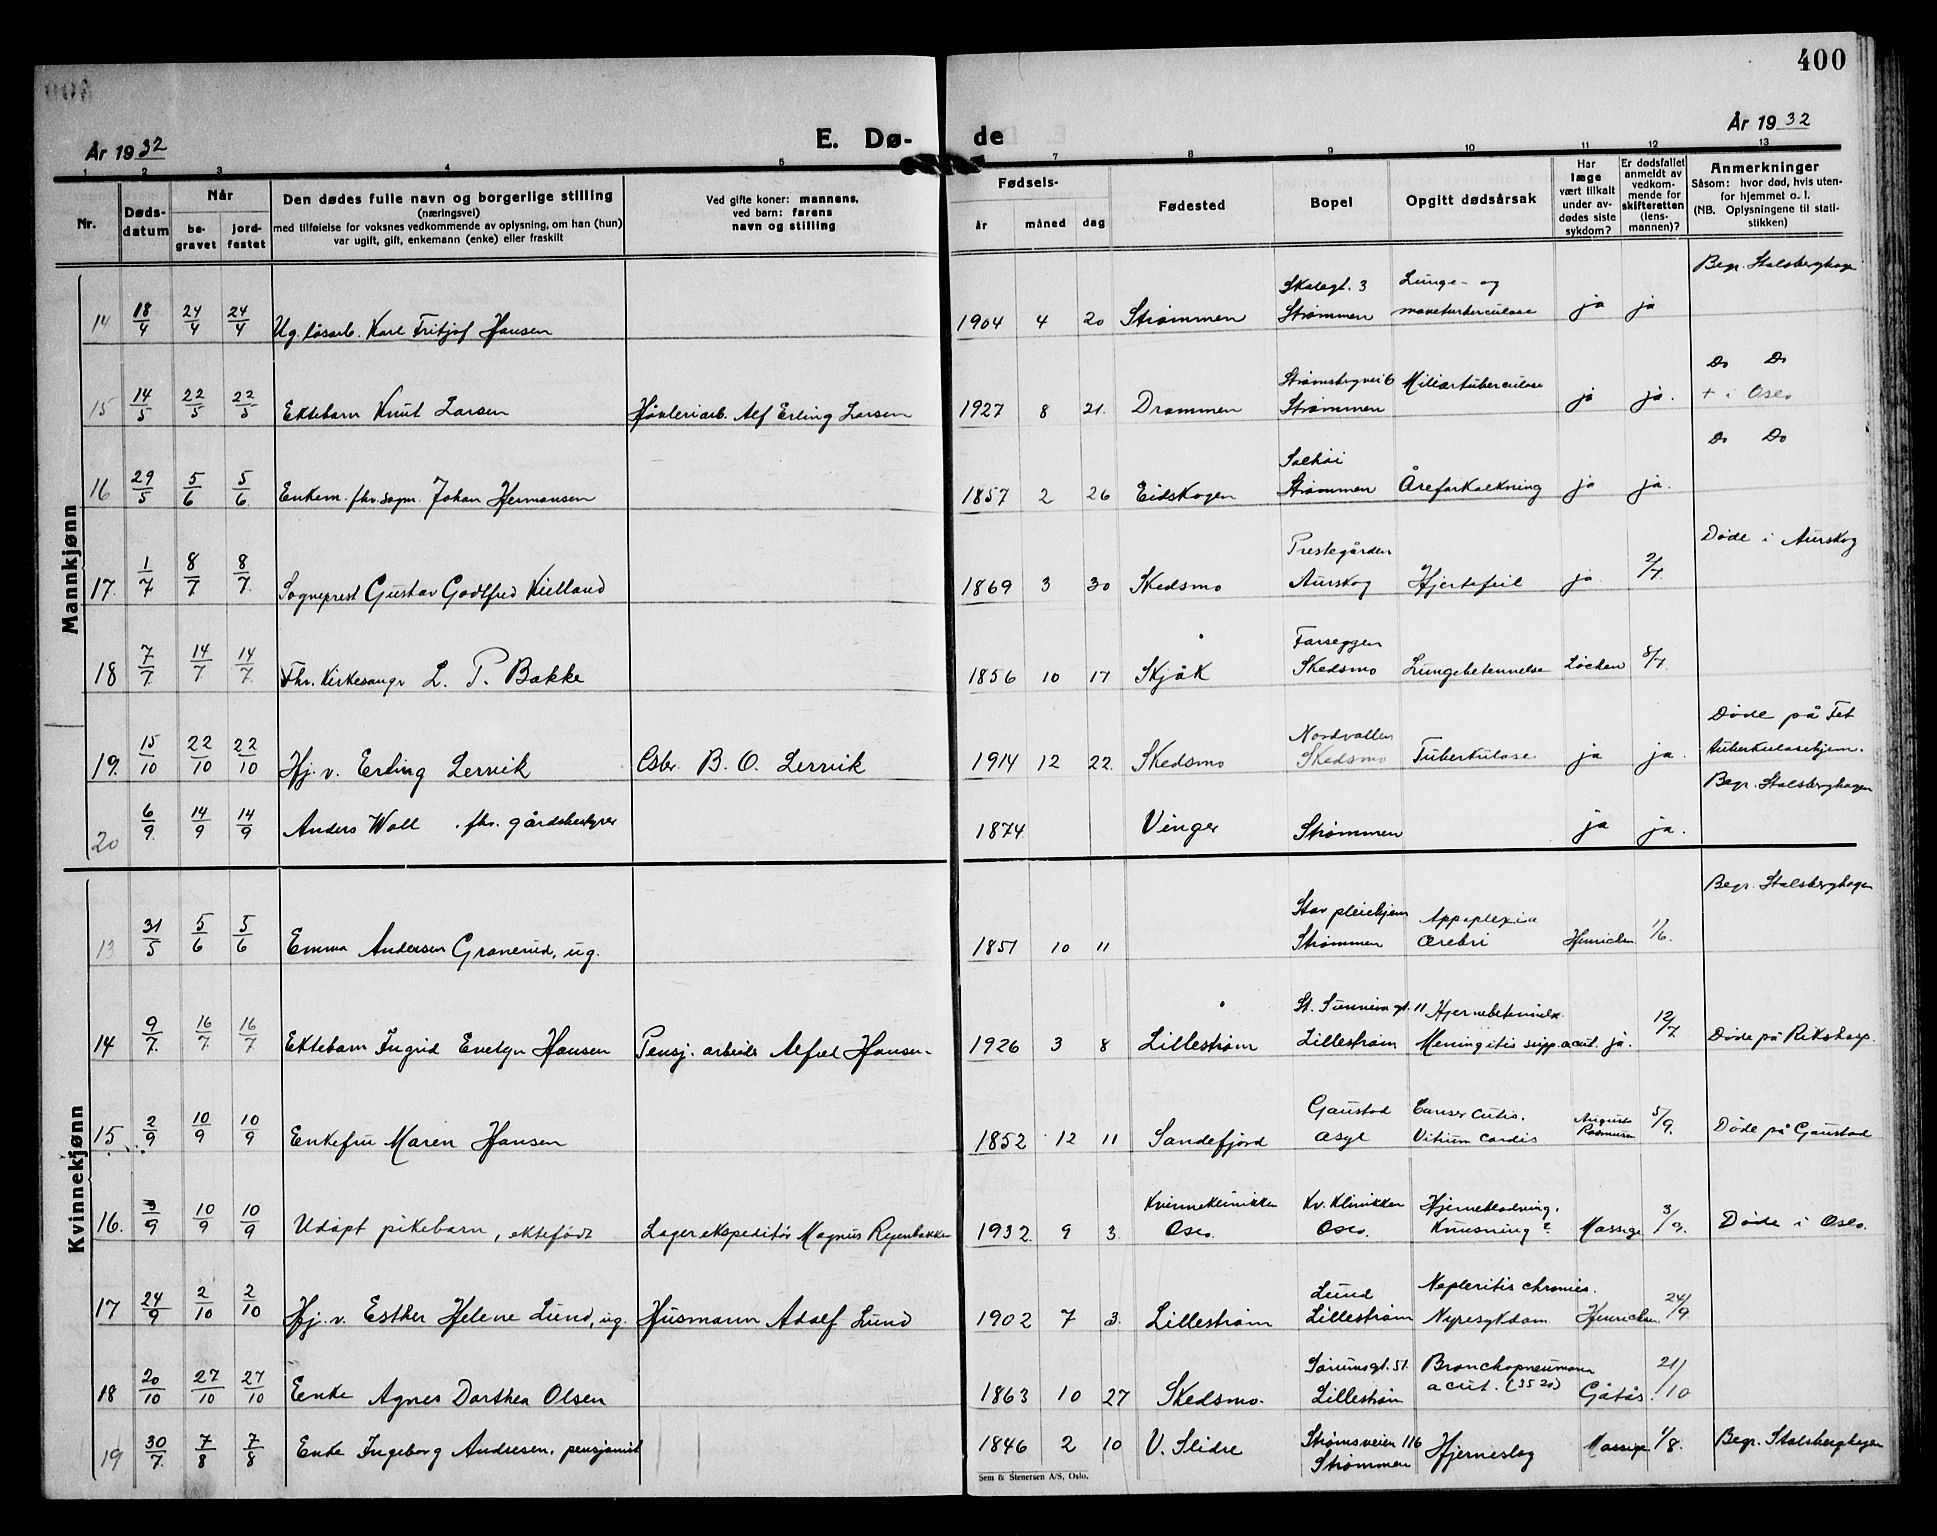 400
År 1932
E. Dø-
de
År 1932
1 2 3 4 5 7 8 9 10 11 12 13
Nr.
Døds-
datum
Når
be-
gravet
jord-
festet
Den dødes fulle navn og borgerlige stilling
(næringsvei)
med tilføielse for voksnes vedkommende av oplysning, om han (hun)
var ugift, gift, enkemann (enke) eller fraskilt
Ved gifte koner: mannens,
ved barn: farens
navn og stilling
Fødsels-
år måned dag
Fødested
Bopel
Opgitt dødsårsak
Har
læge
vært tilkalt
under av-
dødes siste
sykdom?
Er dødsfallet
anmeldt av
vedkom-
mende for
skifteretten
(lens-
mannen)?
Anmerkninger
Såsom: hvor død, hvis uten-
for hjemmet o. l.
(NB. Oplysningene til stati-
stikken)
Mannkjønn
14 18/4 24/4 24/4 Ug. løsarb. Karl Fritjof Hansen 1904 4 20 Strømmen Skolegt. 3 Strømmen Lunge- og mavetuberculose ja ja Begr. Stalsberghagen
15 14/5 22/5 22/5 Ektebarn Knut Larsen Høvleriarb. Alf Erling Larsen 1927 8 21. Drammen Strømsbogvei 6 Strømmen Miliærtuberculose ja ja. Do Do + i Oslo
16 29/5 5/6 5/6 Enkem. fhv. sagm. Johan Hermansen 1857 2 26 Eidskogen Solhøi Strømmen Åreforkalkning ja ja. Do Do
17. 1/7 8/7 8/7 Sogneprest Gustav Godtfred Kielland 1869 3 30 Skedsmo Prestegården Aurskog Hjertefeil ja 2/7. Døde i Aurskog
18 7/7 14/7 14/7 Fhv. Kirkesangr L. P. Bakke 1856 10 17 Skjåk Farseggen Skedsmo Lungebetennelse Løchen 8/7.
19. 15/10 22/10 22/10 Hj. v. Erling Lervik Gsbr. B. O. Lervik 1914 12 22. Skedsmo Nordvallen Skedsmo Tuberkulose ja ja. Døde på Fet tuberkulosehjem.
20 6/9 14/9 14/9 Anders Woll . fhv. gårdsbestyrer 1874 Vinger Strømmen ja ja. Begr. Stalsberghagen
Kvinnekjønn
13 31/5 5/6 5/6 Emma Andersen Granerud, ug. 1851 10 11 Stav pleiehjem Strømmen Appoplexia cerebri Henrichsen 1/6. Begr. Stalsberghagen
14 9/7. 16/7. 16/7 Ektebarn Ingrid Evelyn Hansen Pensj. arbeider Alfred Hansen. 1926 3 8 Lillestrøm St. Sunniva gt. 11 Lillestrøm Hjernebetennelse. Meningitis supp. acut. ja. 12/7 Døde på Rikshosp.
15 2/9 10/9 10/9 Enkefru Maren Hansen 1852 12 11 Sandefjord Gaustad asyl Cancer cutis. Vitium cordis Augusta Rasmussen 5/9. Døde på Gaustad
16. 3/9 10/9 10/9 Udøpt pikebarn, ektefødt Lagerekspeditør Magnus Ryenbakken 1932. 9 3. Kvinneklinikken Oslo. Kv. Klinikken Oslo. Hjerneblødning. Knusning? 3/9. Døde i Oslo.
17 24/9 2/10 2/10 Hj. v. Esther Helene Lund, ug. Husmann Adolf Lund 1902 7 3. Lillestrøm Lund Lillestrøm Nepleritis chronics. Nyresykdom Henrichsen. 24/9
18 20/10 27/10 27/10 Enke Agnes Dorthea Olsen 1863 10 27 Skedsmo. Sørumsgt. 51. Lillestrøm Bronchopneumoni acut. (3520) Gåtås. 21/10
19 30/7. 7/8 7/8 Enke Ingeborg Andresen, pensjonist 1846 2 10 V. Slidre Strømsveien 116 Strømmen Hjerneslag 1/8. Begr. Stalsberghagen
Sem & Stenersen A/S, Oslo.